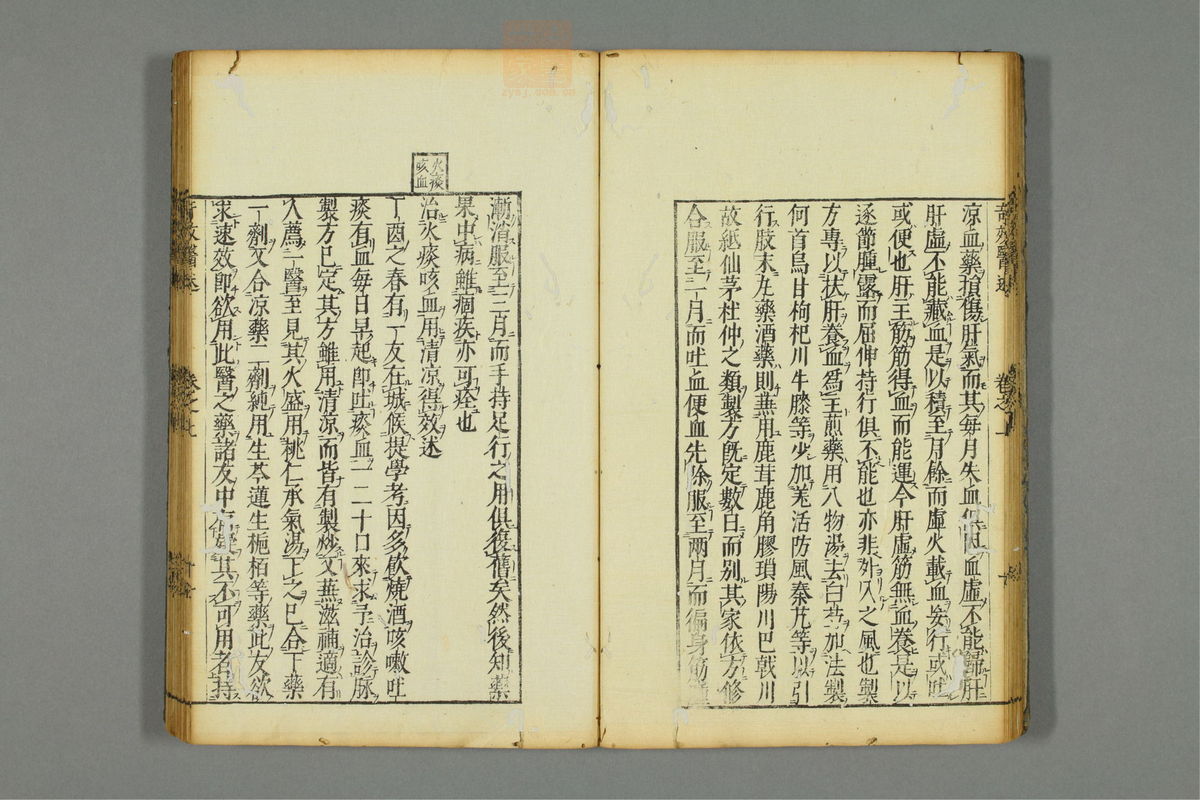 涼血藥損傷肝氣而其每月失血俱因血虛不能歸肝
肝虛不能藏血是以積至月餘而虛火載血妄行或吐
或便也肝主筋筋得血而能運今肝虛筋無血養是以
逐節腫露而屈伸持行俱不能也亦非外入之風也製
方專以扶肝養血爲主煎藥用八物湯去白朮加法製
何首烏甘枸杞川牛膝等少加羌活防風秦艽等以引
行肢末丸藥酒藥則兼用鹿茸鹿角膠瑣陽川巴戟川
故紙仙茅杜仲之類製方既定數日而別其家依方修
合服至一月而吐血便血先除服至兩月而徧身筋
漸消服至三月而手持足行之用俱復舊矣然後知藥
果中病雖痼疾亦可痊也
火痰咳血
治火痰咳血用清涼得效述
丁酉之春有一友在城候提學考因多飲燒酒咳嗽吐
痰有血每日早起即吐痰血一二十口來求予治診脉
製方已定其方雖用清涼而皆有製炒又兼滋補適有
人薦一醫至見其火盛用桃仁承氣湯下之已合下藥
一劑又合凉藥二劑純用生芩連生梔栢等藥此友欲
求速效即欲用此醫之藥諸友中有疑其不可用者持
奇效醫述
卷之一
奇效醫述
卷之上
zysj.com.cn